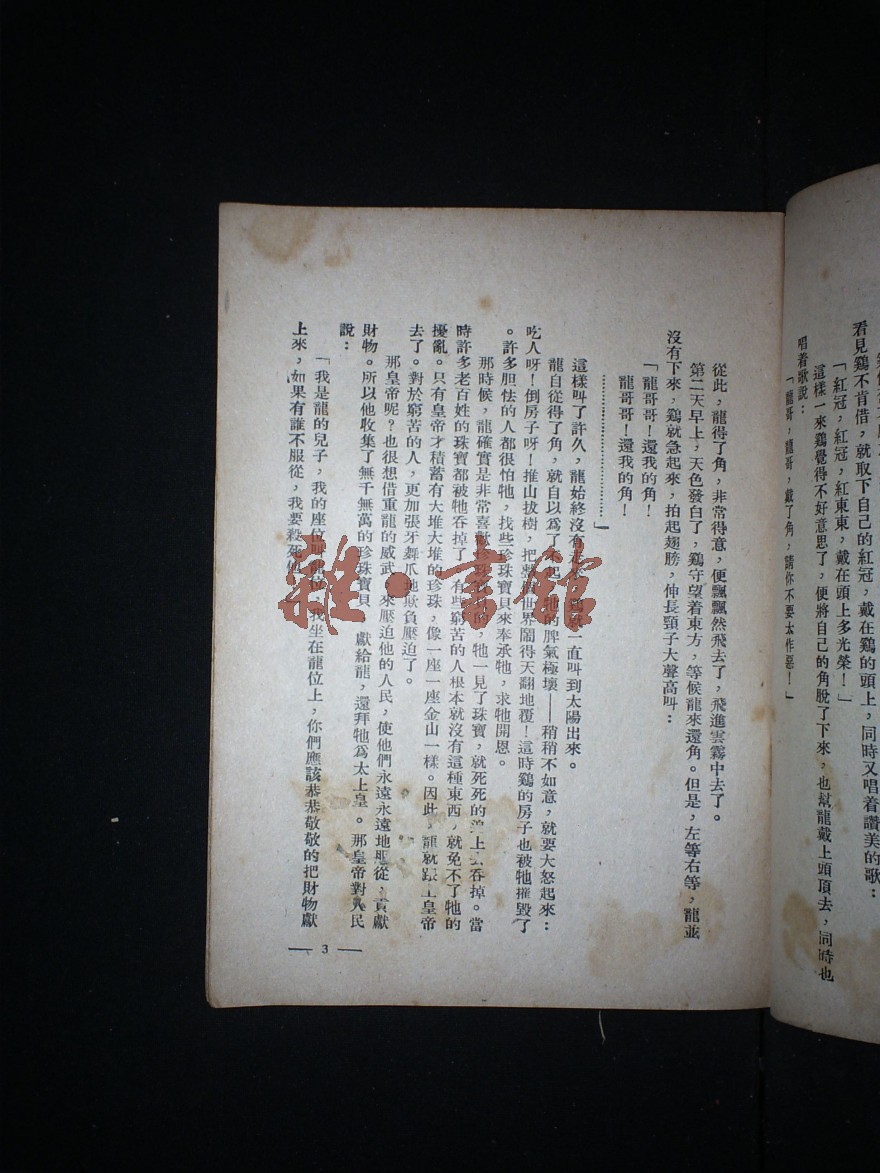 看見鷄不肯借，就取下自己的紅冠，戴在鷄的頭上，同時又唱着讚美的歌：
「紅冠，紅冠，紅東東，戴在頭上多光榮！」
這樣一來鷄覺得不好意思了，便將自己的角脫了下來，也幫龍戴上頭頂去，同時也
唱着歌說：
「龍哥，龍哥，戴了角，請你不要太作惡！」
從此，龍得了角，非常得意，便飄飄然飛去了，飛進雲霧中去了。
第二天早上，天色發白了，鷄守望着東方，等候龍來還角。但是，左等右等，龍並
沒有下來，鷄就急起來，拍起翅膀，伸長頸子大聲高叫：
「龍哥哥！還我的角！
龍哥哥！還我的角！
……………………………」
這樣叫了許久，龍始終沒有一直叫到太陽出來。
龍自從得了角，就自以爲了不起，牠的脾氣極壞——稍稍不如意，就要大怒起來：
吃人呀！倒房子呀！推山拔樹，把整個世界鬧得天翻地覆！這時鷄的房子也被牠摧毀了
。許多胆怯的人都很怕牠，找些珍珠寶貝來奉承牠，求牠開恩。
那時候，龍確實是非常喜歡珍珠的，牠一見了珠寶，就死死的上去吞掉。當
時許多老百姓的珠寶都被牠吞掉了，有些窮苦的人根本就沒有這種東西，就免不了牠的
擾亂。只有皇帝才積蓄有大堆大堆的珍珠，像一座一座金山一樣。因此，龍就跟上皇帝
去了。對於窮苦的人，更加張牙舞爪地欺負壓迫了。
那皇帝呢？也很想借重龍的威武，來壓迫他的人民，使他們永遠永遠地服從，貢獻
財物。所以他收集了無千無萬的珍珠寶貝，獻給龍，還拜牠爲太上皇。那皇帝對人民
說：
「我是龍的兒子，我的座位叫龍位，我坐在龍位上，你們應該恭恭敬敬的把財物獻
上來，如果有誰不服從，我要殺死他
— 3 —
雜·書館